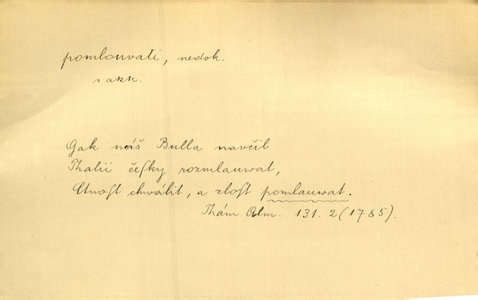 pomlouvati, nedok.
s akk.
Gak náš Bulla navčil
Thalii čeſky rozmlauwat,
Ctnoſt chválit, a zloſt pomlauwat.
Thám Alm. 131. 2 (1785).